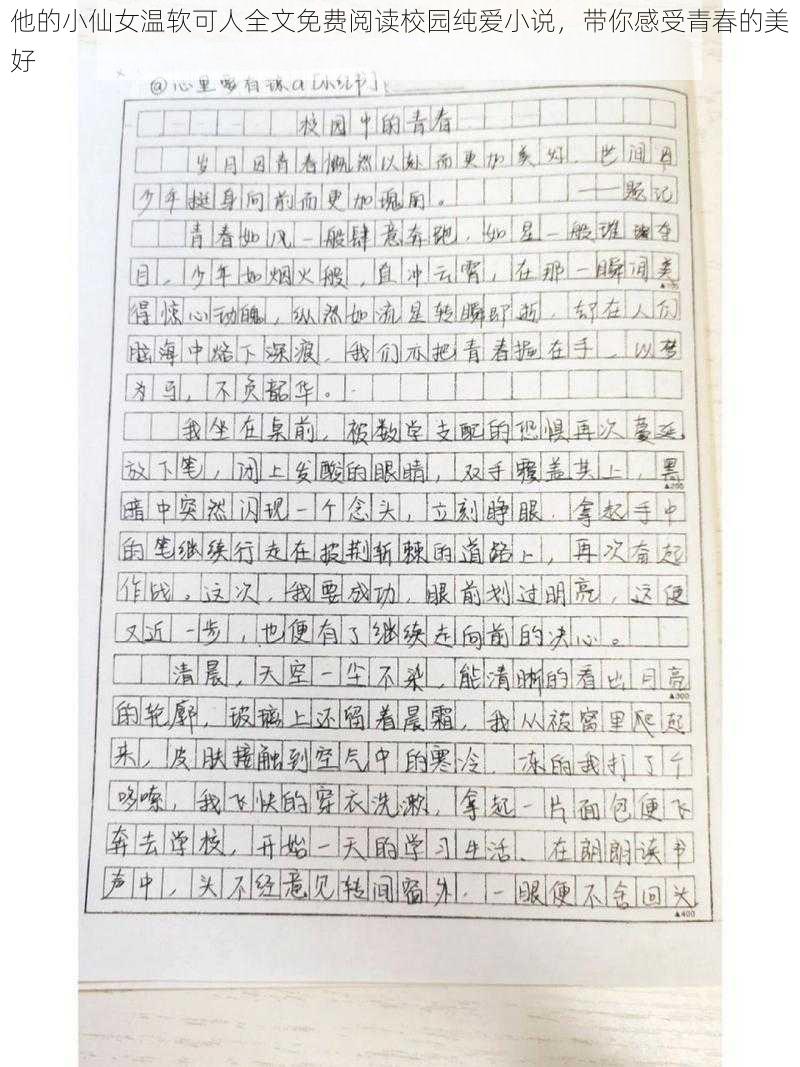 他的小仙女温软可人全文免费阅读校园纯爱小说，带你感受青春的美
好
@心里 [小红书]
校园中的青春
岁月因青春慨然以赴而更加美好，世间因
少年挺身向前而更加瑰丽。 ——题记
青春如风一般肆意奔跑，如星一般璀璨夺
目，少年如烟火般，直冲云霄，在那一瞬间美
得惊心动魄，纵然如流星转瞬即逝，却在人们
脑海中烙下深痕，我们亦把青春握在手，以梦
为马，不负韶华。
我坐在桌前，被数学支配的恐惧再次蔓延
放下笔，闭上发酸的眼睛，双手覆盖其上，黑
▲200
暗中突然闪现一个念头，立刻睁眼，拿起手中
的笔继续行走在披荆斩棘的道路上，再次奋起
作战。这次，我要成功，眼前划过明亮，这便
又近一步，也便有了继续走向前的决心。
清晨，天空一尘不染，能清晰的看出月亮
▲300
的轮廓，玻璃上还留着晨霜，我从被窝里爬起
来，皮肤接触到空气中的寒冷，冻的我打了个
哆嗦，我飞快的穿衣洗漱，拿起一片面包便飞
奔去学校，开始一天的学习生活、在朗朗读书
声中，头不经意见转间窗外，一眼便不舍回头
▲400